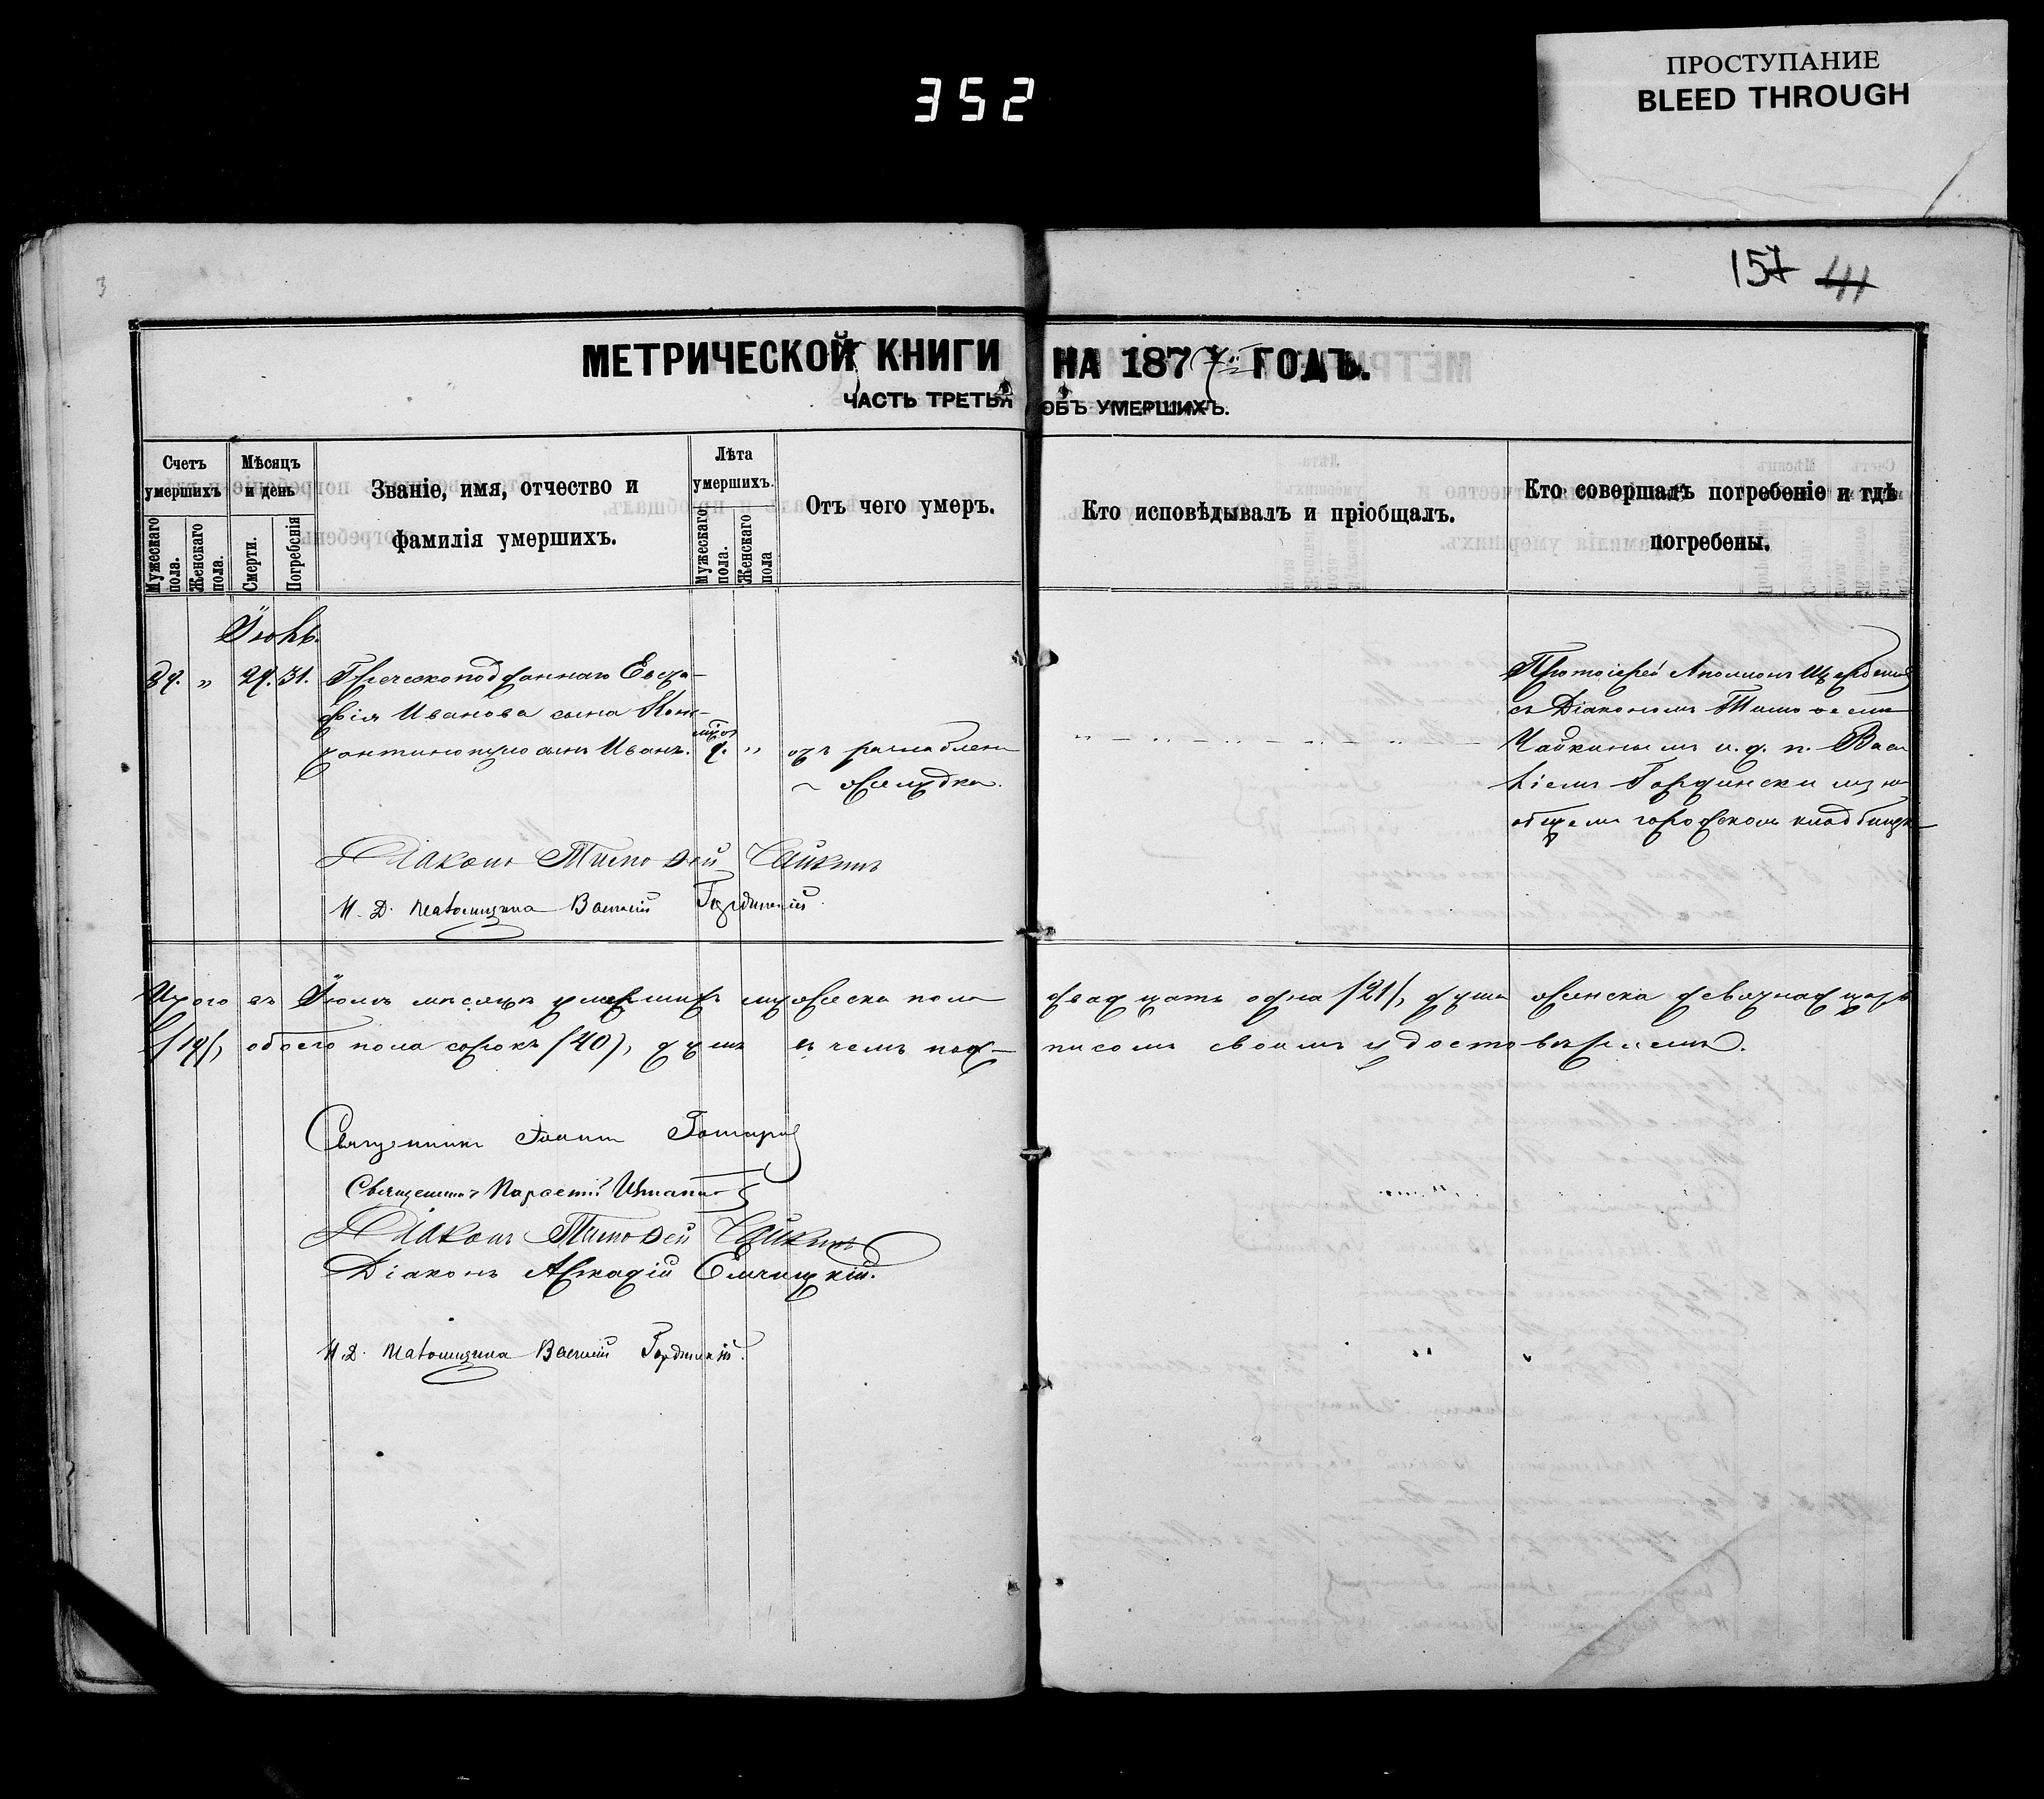 352
ПРОСТУПАНИЕ
BLEED THROUGH
157 41
3
МЕТРИЧЕСКОЙ КНИГИ НА 1877 ГОДЪ.
ЧАСТЬ ТРЕТЬЯ ОБЪ УМЕРШИХЪ.
Счетъ умершихъ
Мужескаго пола.
Женскаго пола.
Мѣсяцъ и день
Смерти.
Погребенія
Званіе, имя, отчество и
фамилія умершихъ.
Лѣта умершихъ.
Мужескаго пола.
Женскаго пола
Отъ чего умеръ.
Кто исповѣдывалъ и пріобщалъ.
Кто совершалъ погребеніе и гдѣ
погребены.
Іюль.
„ 29. 31. Греческоподданнаго Евста-
фія Иванова сына Конс-
тантинопуло сынъ Иванъ. „ отъ разслаблені
желудка.
Протоіерей Аполлонъ
съ Діакономъ Тимофеем
Чайкинымъ и. д. п. Васи
ліемъ Гординскимъ на
общемъ городском кладбищѣ
Діаконъ Тимофей Чайкинъ
И. Д. Псаломщика Василій Гординскій
Итого въ Іюлѣ мѣсяцѣ умерших мужеска пола двадцать одна (21), душа женска девятнадцать
(19), обоего пола сорокъ (40), душъ въ чемъ под-писомъ своимъ удостовѣряемъ.
Священникъ Іоаннъ
Священникъ
Діаконъ Тимофей Чайкинъ
Діаконъ Аркадій
И. Д. Псаломщика Василій Гординскій.